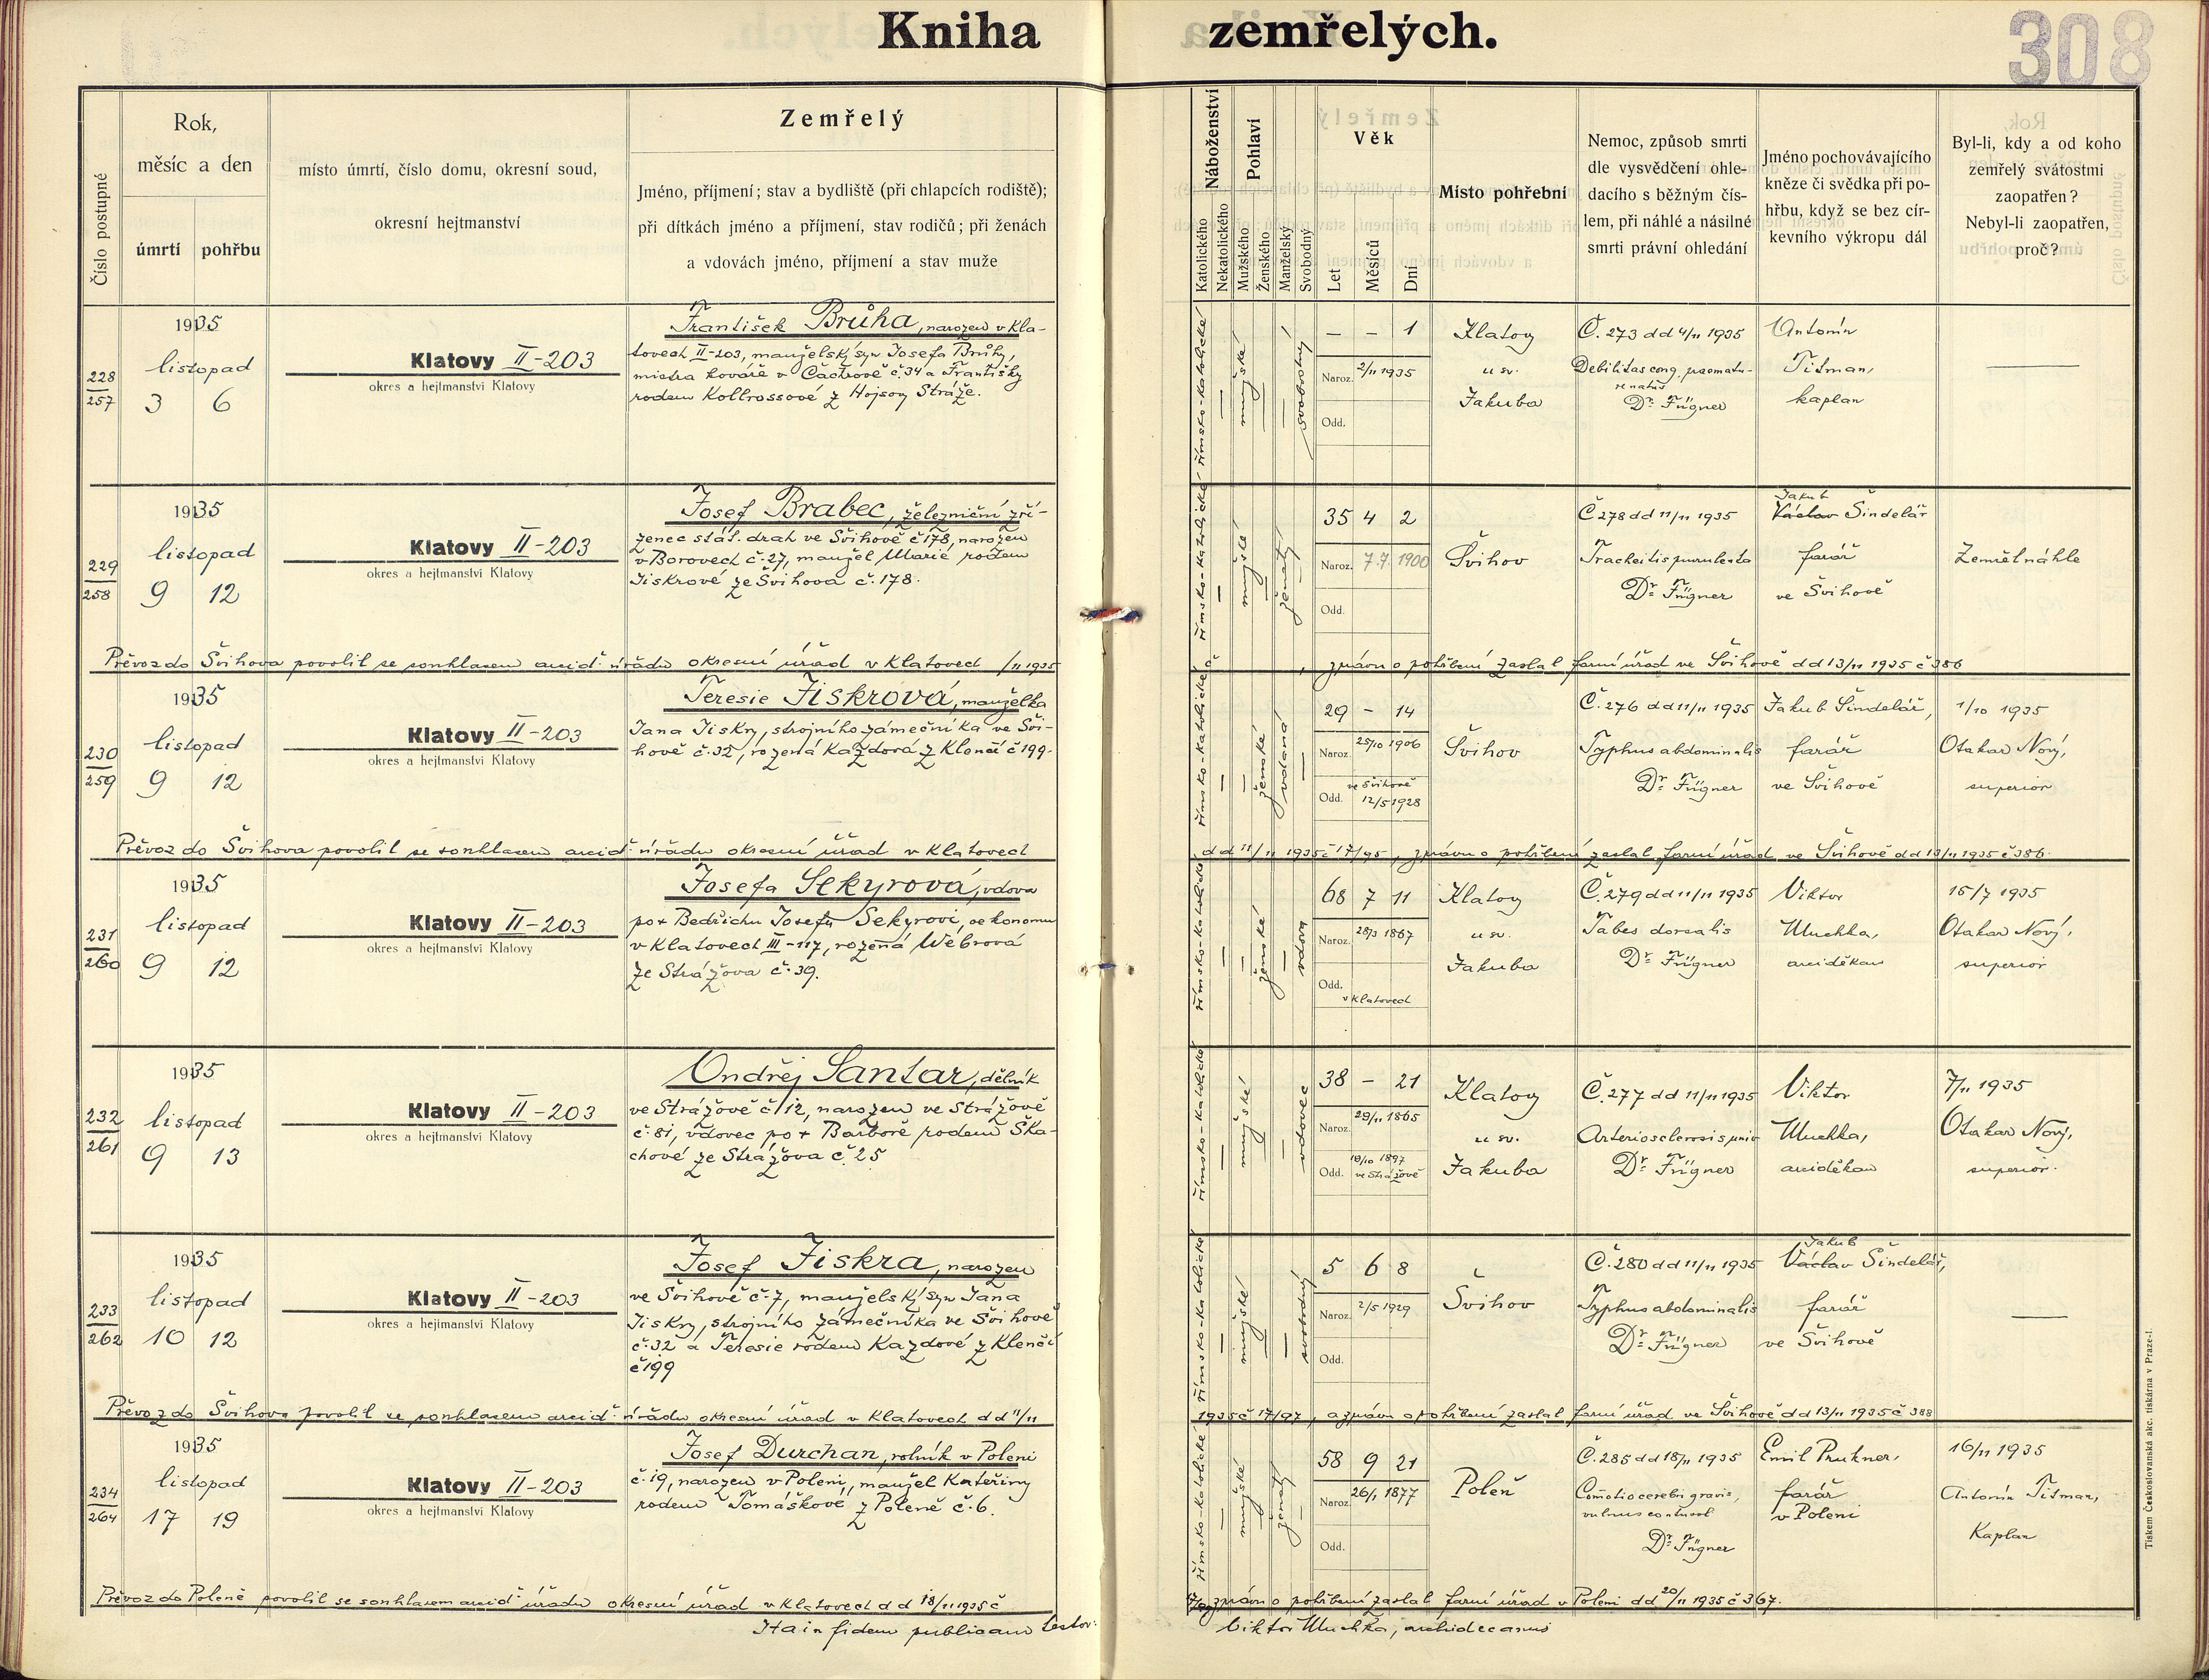 Kniha zemřelých.
308
Číslo postupné
Rok,
měsíc a den
úmrtí
pohřbu
místo úmrtí, číslo domu, okresní soud,
okresní hejtmanství
Zemřelý
Jméno, příjmení; stav a bydliště (při chlapcích rodiště);
při dítkách jméno a příjmení, stav rodičů; při ženách
a vdovách jméno, příjmení a stav muže
Náboženství
Katolického
Nekatolického
Pohlaví
Mužského
Ženského
Manželský
Svobodný
Věk
Let
Měsíců
Dní
Místo pohřební
Nemoc, způsob smrti
dle vysvědčení ohle-
dacího s běžným čís-
lem, při náhlé a násilné
smrti právní ohledání
Jméno pochovávajícího
kněze či svědka při po-
hřbu, když se bez cír-
kevního výkropu dál
Byl-li, kdy a od koho
zemřelý svátostmi
zaopatřen?
Nebyl-li zaopatřen,
proč?
228
257
1935
listopad
3 6
Klatovy II-203
okres a hejtmanství Klatovy
František Brůha, narozen v Kla-
tovech II-203, manželský syn Josefa Brůhy,
mistra kováře v Čachrově č. 34 a Františky
rodem Kollrossové z Hojsovy Stráže.
římsko-katolické
mužské
svobodný
— — 1
Naroz. 2/11 1935
Odd.
Klatovy
u sv.
Jakuba
Č. 273 dd 4/11 1935
Debilitas cong. praematu-
re natus
Dr. Fügner
Antonín
Titman,
kaplan
—
229
258
1935
listopad
9 12
Klatovy II-203
okres a hejtmanství Klatovy
Josef Brabec, železniční zří-
zenec stát. drah ve Švihově č 178, narozen
v Borovech č. 27, manžel Marie rodem
Jiskrové ze Švihova č. 178.
římsko-katolické
mužské
ženatý
35 4 2
Naroz. 7.7. 1900
Odd.
Švihov
Č 278 dd 11/11 1935
Tracheitis purulenta
Dr. Fügner
Jakub
Václav Šindelář
farář
ve Švihově
Zemřel náhle
Převoz do Švihova povolil se souhlasem arcid. úřadu okresní úřad v Klatovech /11 1935
č , zprávu o pohřbení zaslal farní úřad ve Švihově dd 13/11 1935 č 386
230
259
1935
listopad
9 12
Klatovy II-203
okres a hejtmanství Klatovy
Teresie Jiskrová, manželka
Jana Jiskry, strojního zámečníka ve Švi-
hově č. 32, rozená Kazdová z Klenčí č 199.
římsko-katolické
ženské
vdaná
29 — 14
Naroz. 25/10 1906
Odd. ve Švihově
12/5 1928
Švihov
Č. 276 dd 11/11 1935
Typhus abdominalis
Dr. Fügner
Jakub Šindelář,
farář
ve Švihově
1/10 1935
Otakar Nový,
superior
Převoz do Švihova povolil se souhlasem arcid. úřadu okresní úřad v Klatovech
dd 11/11 1935 č 17/95, zprávu o pohřbení zaslal farní úřad ve Švihově dd 13/11 1935 č 386.
231
260
1935
listopad
9 12
Klatovy II-203
okres a hejtmanství Klatovy
Josefa Sekyrová, vdova
po + Bedřichu Josefu Sekyrovi, oekonomu
v Klatovech III-117, rozená Webrová
ze Strážova č. 39.
římsko-katolické
ženské
vdova
68 7 11
Naroz. 28/3 1867
Odd.
v Klatovech
Klatovy
u sv.
Jakuba
Č. 279 dd 11/11 1935
Tabes dorsalis
Dr. Fügner
Viktor
Muchka,
arciděkan
15/7 1935
Otakar Nový,
superior
232
261
1935
listopad
9 13
Klatovy II-203
okres a hejtmanství Klatovy
Ondřej Santar, dělník
ve Strážově č 12, narozen ve Strážově
č. 81, vdovec po + Barboře rodem Ska-
chové ze Strážova č. 25
římsko-katolické
mužské
vdovec
38 — 21
Naroz. 29/11 1865
Odd. 19/10 1897
ve Strážově
Klatovy
u sv.
Jakuba
Č. 277 dd 11/11 1935
Arteriosclerosis univ
Dr. Fügner
Viktor
Muchka,
arciděkan
7/11 1935
Otakar Nový,
superior.
233
262
1935
listopad
10 12
Klatovy II-203
okres a hejtmanství Klatovy
Josef Jiskra, narozen
ve Švihově č. 7, manželský syn Jana
Jiskry, strojního zámečníka ve Švihově
č. 32 a Teresie rodem Kazdové z Klenčí
č 199
římsko-katolické
mužské
svobodný
5 6 8
Naroz. 2/5 1929
Odd.
Švihov
Č. 280 dd 11/11 1935
Typhus abdominalis
Dr. Fügner
Jakub
Václav Šindelář,
farář
ve Švihově
—
Převoz do Švihova povolil se souhlasem arcid. úřadu okresní úřad v Klatovech dd 11/11
1935 č 17/97, a zprávu o pohřbení zaslal farní úřad ve Švihově dd 13/11 1935 č 388
234
264
1935
listopad
17 19
Klatovy II-203
okres a hejtmanství Klatovy
Josef Durchan, rolník v Poleni
č. 19, narozen v Poleni, manžel Kateřiny
rodem Tomáškové z Poleně č. 6.
římsko-katolické
mužské
ženatý
58 9 21
Naroz. 26/1 1877
Odd.
Poleň
Č. 285 dd 18/11 1935
Comotio cerebri gravis,
vulnus contusol
Dr. Fügner
Emil Prukner,
farář
v Poleni
16/11 1935
Antonín Titman,
Kaplan
Převoz do Poleně povolil se souhlasem arcid. úřadu okresní úřad v Klatovech dd 18/11 1935 č
zprávu o pohřbení zaslal farní úřad v Poleni dd 20/11 1935 č 367.
Ita in fidem publicam testor:
Viktor Muchka, archidecanus
Tiskem Československá akc. tiskárna v Praze-I.